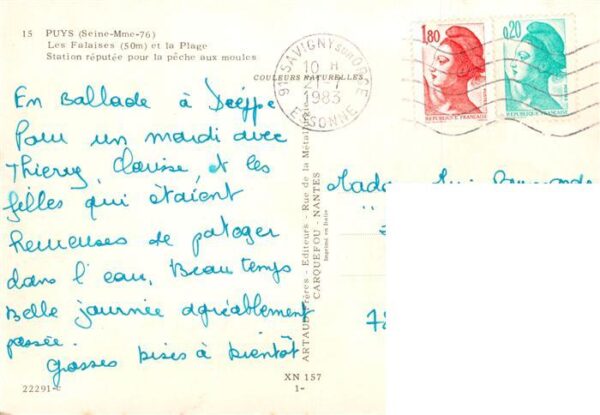 15 PUYS (Seine-Mme-76)
Les Falaises (50m) et la Plage
Station réputée pour la pêche aux moules
COULEURS NATURELLES
91 SAVIGNY SUR ORGE
10 H
1983
ESSONNE
1,80
REPUBLIQUE FRANÇAISE
0,20
REPUBLIQUE FRANÇAISE
En Ballade à Dieppe
Pour un mardi avec
Thierry, Clarisse, et les
filles qui étaient
heureuses de patoger
dans l'eau. Beau temps
Belle journée agréablement
passée.
Grosses bises à bientôt
ARTAUD Frères - Editeurs - Rue de la Métallurgie
CARQUEFOU - NANTES
Imprimé en Italie
22291-
XN 157
1-